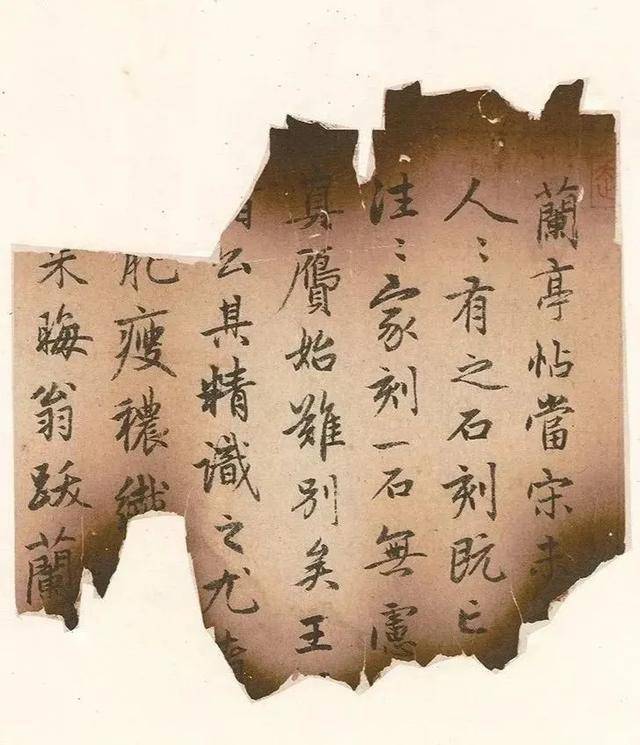 蘭亭帖當宋未
人〻有之石刻既亡
往〻家刻一石無慮
真贗始難別矣王
公其精識之尤
肥瘦穠纖
朱晦翁跋蘭